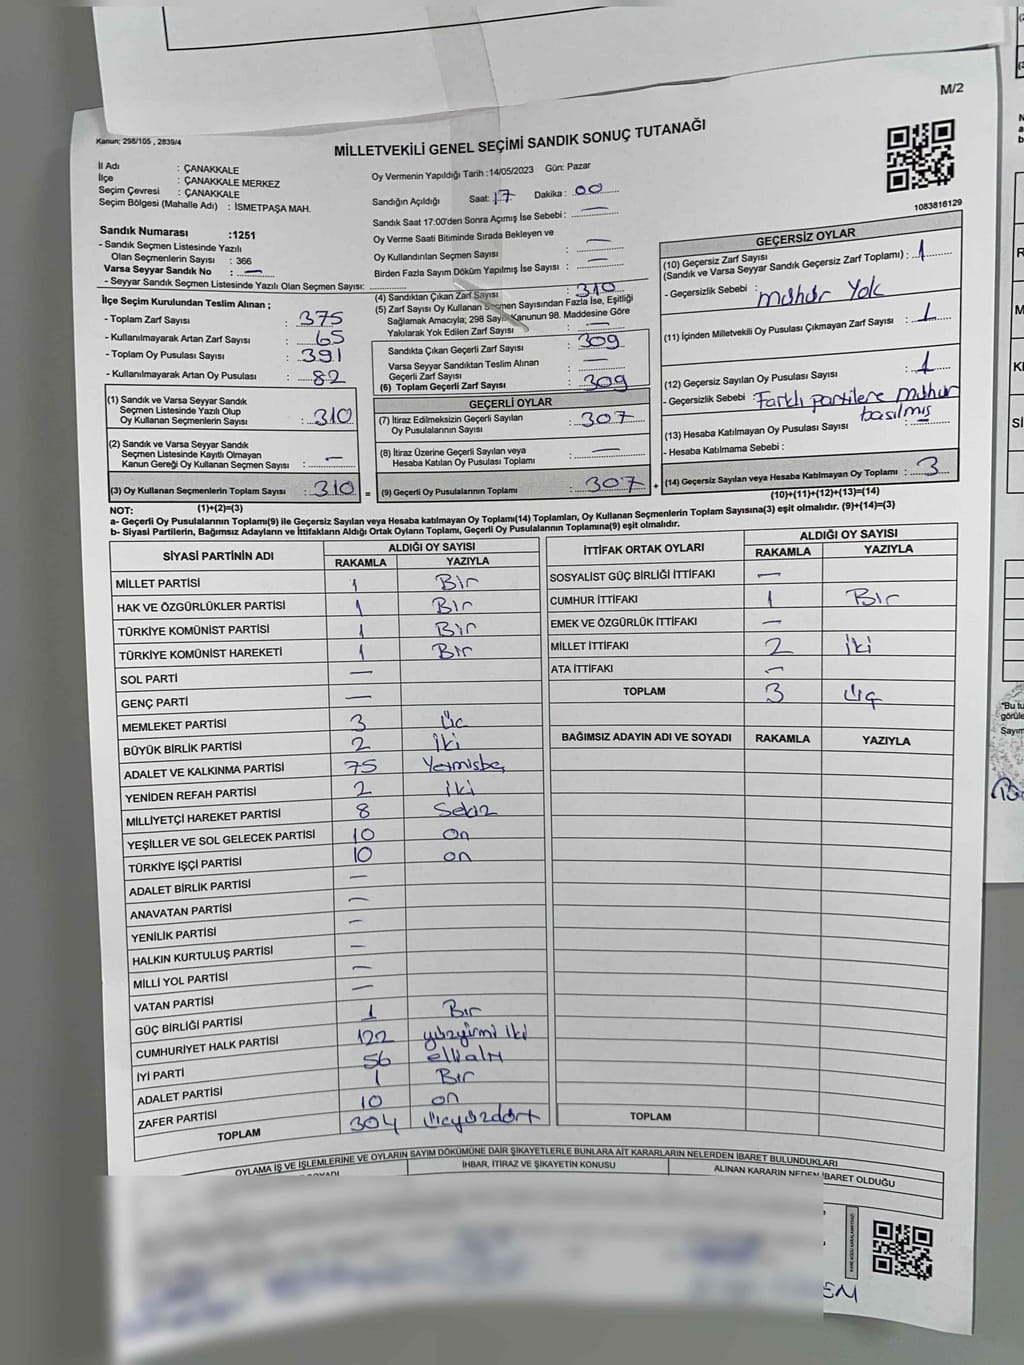 M/2
Kanun: 298/105 , 2839/4
MİLLETVEKİLİ GENEL SEÇİMİ SANDIK SONUÇ TUTANAĞI
İl Adı : ÇANAKKALE
İlçe : ÇANAKKALE MERKEZ
Seçim Çevresi : ÇANAKKALE
Seçim Bölgesi (Mahalle Adı) : İSMETPAŞA MAH.
Sandık Numarası :1251
- Sandık Seçmen Listesinde Yazılı
Olan Seçmenlerin Sayısı : 366
Varsa Seyyar Sandık No : —
- Seyyar Sandık Seçmen Listesinde Yazılı Olan Seçmen Sayısı:
Oy Vermenin Yapıldığı Tarih :14/05/2023 Gün: Pazar
Sandığın Açıldığı Saat: 17 Dakika : 00
Sandık Saat 17:00'den Sonra Açımış İse Sebebi : —
Oy Verme Saati Bitiminde Sırada Bekleyen ve
Oy Kullandırılan Seçmen Sayısı : —
Birden Fazla Sayım Döküm Yapılmış İse Sayısı : —
1083816129
İlçe Seçim Kurulundan Teslim Alınan ;
- Toplam Zarf Sayısı : 375
- Kullanılmayarak Artan Zarf Sayısı : 65
- Toplam Oy Pusulası Sayısı : 391
- Kullanılmayarak Artan Oy Pusulası : 82
(1) Sandık ve Varsa Seyyar Sandık
Seçmen Listesinde Yazılı Olup
Oy Kullanan Seçmenlerin Sayısı : 310
(2) Sandık ve Varsa Seyyar Sandık
Seçmen Listesinde Kayıtlı Olmayan
Kanun Gereği Oy Kullanan Seçmen Sayısı : —
(3) Oy Kullanan Seçmenlerin Toplam Sayısı : 310 =
(1)+(2)=(3)
(4) Sandıktan Çıkan Zarf Sayısı : 310
(5) Zarf Sayısı Oy Kullanan Seçmen Sayısından Fazla İse, Eşitliği
Sağlamak Amacıyla; 298 Sayılı Kanunun 98. Maddesine Göre
Yakılarak Yok Edilen Zarf Sayısı : —
Sandıkta Çıkan Geçerli Zarf Sayısı : 309
Varsa Seyyar Sandıktan Teslim Alınan
Geçerli Zarf Sayısı : —
(6) Toplam Geçerli Zarf Sayısı : 309
GEÇERLİ OYLAR
(7) İtiraz Edilmeksizin Geçerli Sayılan
Oy Pusulalarının Sayısı : 307
(8) İtiraz Üzerine Geçerli Sayılan veya
Hesaba Katılan Oy Pusulası Toplamı : —
(9) Geçerli Oy Pusulalarının Toplamı : 307 +
GEÇERSİZ OYLAR
(10) Geçersiz Zarf Sayısı
(Sandık ve Varsa Seyyar Sandık Geçersiz Zarf Toplamı) : 1
- Geçersizlik Sebebi : mühür Yok
(11) İçinden Milletvekili Oy Pusulası Çıkmayan Zarf Sayısı : 1
(12) Geçersiz Sayılan Oy Pusulası Sayısı : 1
- Geçersizlik Sebebi : Farklı partilere mühür
basılmış
(13) Hesaba Katılmayan Oy Pusulası Sayısı :
- Hesaba Katılmama Sebebi :
(14) Geçersiz Sayılan veya Hesaba Katılmayan Oy Toplamı : 3
(10)+(11)+(12)+(13)=(14)
NOT:
a- Geçerli Oy Pusulalarının Toplamı(9) ile Geçersiz Sayılan veya Hesaba katılmayan Oy Toplamı(14) Toplamları, Oy Kullanan Seçmenlerin Toplam Sayısına(3) eşit olmalıdır. (9)+(14)=(3)
b- Siyasi Partilerin, Bağımsız Adayların ve İttifakların Aldığı Ortak Oyların Toplamı, Geçerli Oy Pusulalarının Toplamına(9) eşit olmalıdır.
SİYASİ PARTİNİN ADI ALDIĞI OY SAYISI
RAKAMLA YAZIYLA
MİLLET PARTİSİ 1 Bir
HAK VE ÖZGÜRLÜKLER PARTİSİ 1 Bir
TÜRKİYE KOMÜNİST PARTİSİ 1 Bir
TÜRKİYE KOMÜNİST HAREKETİ 1 Bir
SOL PARTİ —
GENÇ PARTİ —
MEMLEKET PARTİSİ 3 Üç
BÜYÜK BİRLİK PARTİSİ 2 İki
ADALET VE KALKINMA PARTİSİ 75 Yetmişbeş
YENİDEN REFAH PARTİSİ 2 iki
MİLLİYETÇİ HAREKET PARTİSİ 8 Sekiz
YEŞİLLER VE SOL GELECEK PARTİSİ 10 On
TÜRKİYE İŞÇİ PARTİSİ 10 on
ADALET BİRLİK PARTİSİ —
ANAVATAN PARTİSİ —
YENİLİK PARTİSİ —
HALKIN KURTULUŞ PARTİSİ —
MİLLİ YOL PARTİSİ —
VATAN PARTİSİ —
GÜÇ BİRLİĞİ PARTİSİ 1 Bir
CUMHURİYET HALK PARTİSİ 122 yüzyirmi iki
İYİ PARTİ 56 ellialtı
ADALET PARTİSİ 1 Bir
ZAFER PARTİSİ 10 on
TOPLAM 304 üçyüzdört
İTTİFAK ORTAK OYLARI ALDIĞI OY SAYISI
RAKAMLA YAZIYLA
SOSYALİST GÜÇ BİRLİĞİ İTTİFAKI —
CUMHUR İTTİFAKI 1 Bir
EMEK VE ÖZGÜRLÜK İTTİFAKI —
MİLLET İTTİFAKI 2 iki
ATA İTTİFAKI —
TOPLAM 3 üç
BAĞIMSIZ ADAYIN ADI VE SOYADI RAKAMLA YAZIYLA
TOPLAM
OYLAMA İŞ VE İŞLEMLERİNE VE OYLARIN SAYIM DÖKÜMÜNE DAİR ŞİKAYETLERLE BUNLARA AİT KARARLARIN NELERDEN İBARET BULUNDUKLARI
İHBAR, İTİRAZ VE ŞİKAYETİN KONUSU
ALINAN KARARIN NEDEN İBARET OLDUĞU
"Bu tu
görüle
Sayım